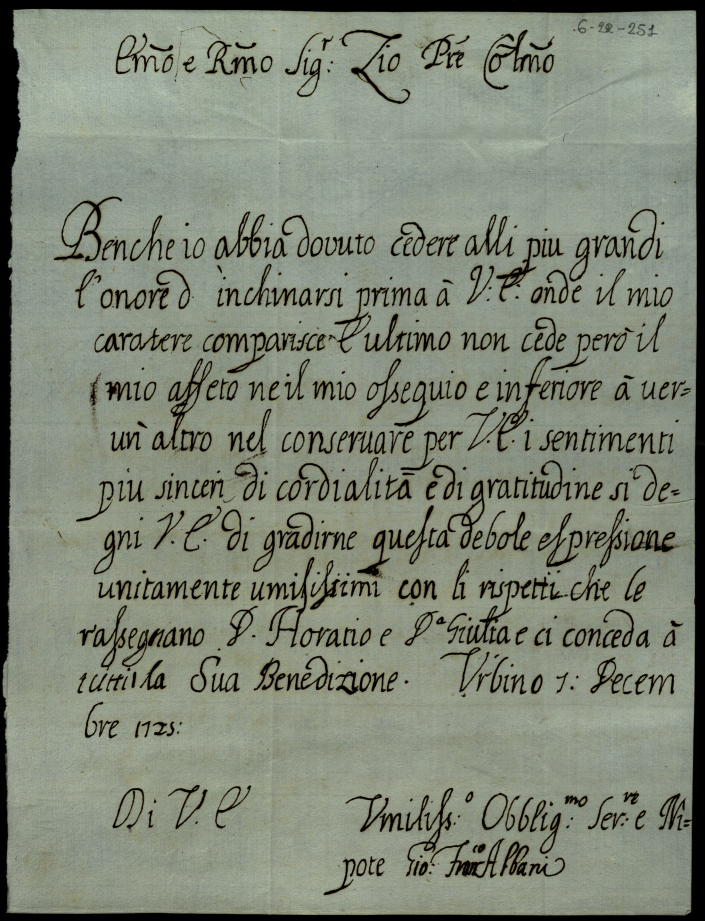 6-22-251
Em̄o e Rm̄o Sig.r Zio Prē Cōlm̄o
Benche io abbia dovuto cedere alli piu grandi
l'onore d' inchinarsi prima à V.E. onde il mio
caratere comparisce l'ultimo non cede però il
mio affeto ne il mio ossequio e inferiore à ver=
un altro nel conservare per V.E. i sentimenti
piu sinceri di cordialità e di gratitudine si de=
gni V.E. di gradirne questa debole espressione
unitamente umilissimi con li rispetti che le
rassegnano D. Horatio e D.a Giulia e ci conceda à
tutti la Sua Benedizione. Urbino 7: Decem
bre 1725:
Di V. E
Umiliss.o Obblig.mo Ser.re e Ni=
pote Gio: Franco Albani